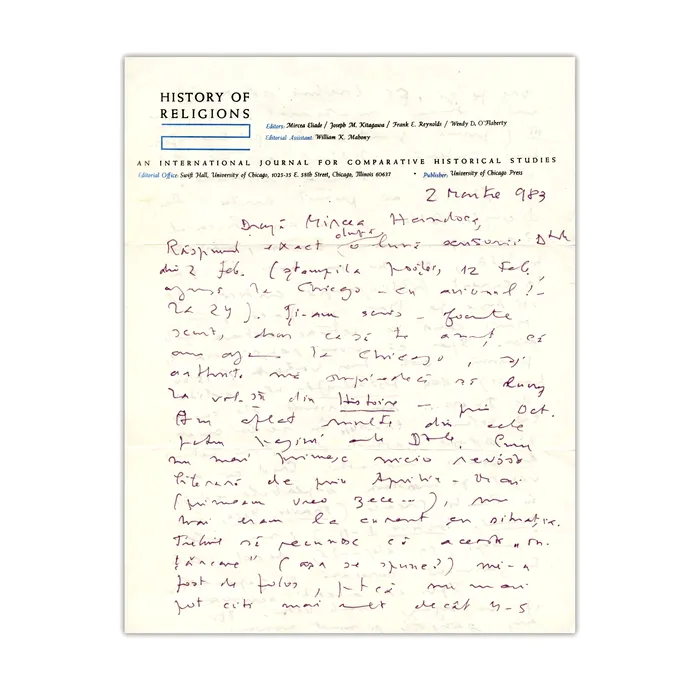 HISTORY OF
RELIGIONS
Editors: Mircea Eliade / Joseph M. Kitagawa / Frank E. Reynolds / Wendy D. O'Flaherty
Editorial Assistant: William K. Mahony
AN INTERNATIONAL JOURNAL FOR COMPARATIVE HISTORICAL STUDIES
Editorial Office: Swift Hall, University of Chicago, 1025-35 E. 58th Street, Chicago, Illinois 60637 • Publisher: University of Chicago Press
2 Martie 983
Dragă Mircea Handoca,
Răspund exact după o lună scrisorii Dtale
din 2 feb. (ștampila poștei, 12 feb.,
ajuns la Chicago – cu avionul! –
la 24). Ți-am scris – foarte
scurt, doar ca să te anunț că
am ajuns la Chicago, și
artrita mă împiedică să lucrez
la vol. III din Histoire – prin Oct.
Am aflat multe din cele
patru pagini ale Dtale. Cum
nu mai primesc nicio revistă
literară de prin Aprilie – Mai
(primeam vreo zece...), nu
mai eram la curent cu situația.
Trebuie să recunosc că această „în-
" (așa se spune?) mi-a
fost de folos, pt că nu mai
pot citi mai mult decât 4-5